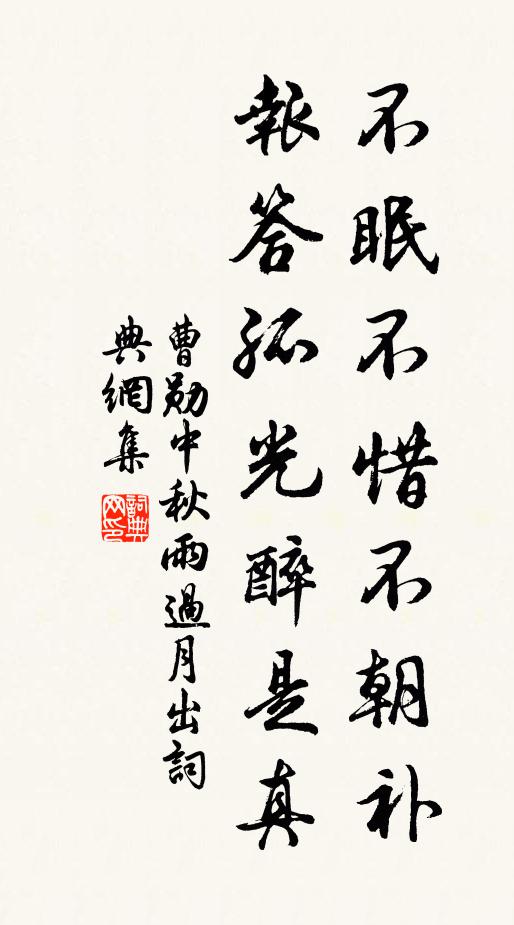 不眠不惜不朝补
報答孤光醉是真
曹勛中秋雨過月出詞
典網集
詞典网印